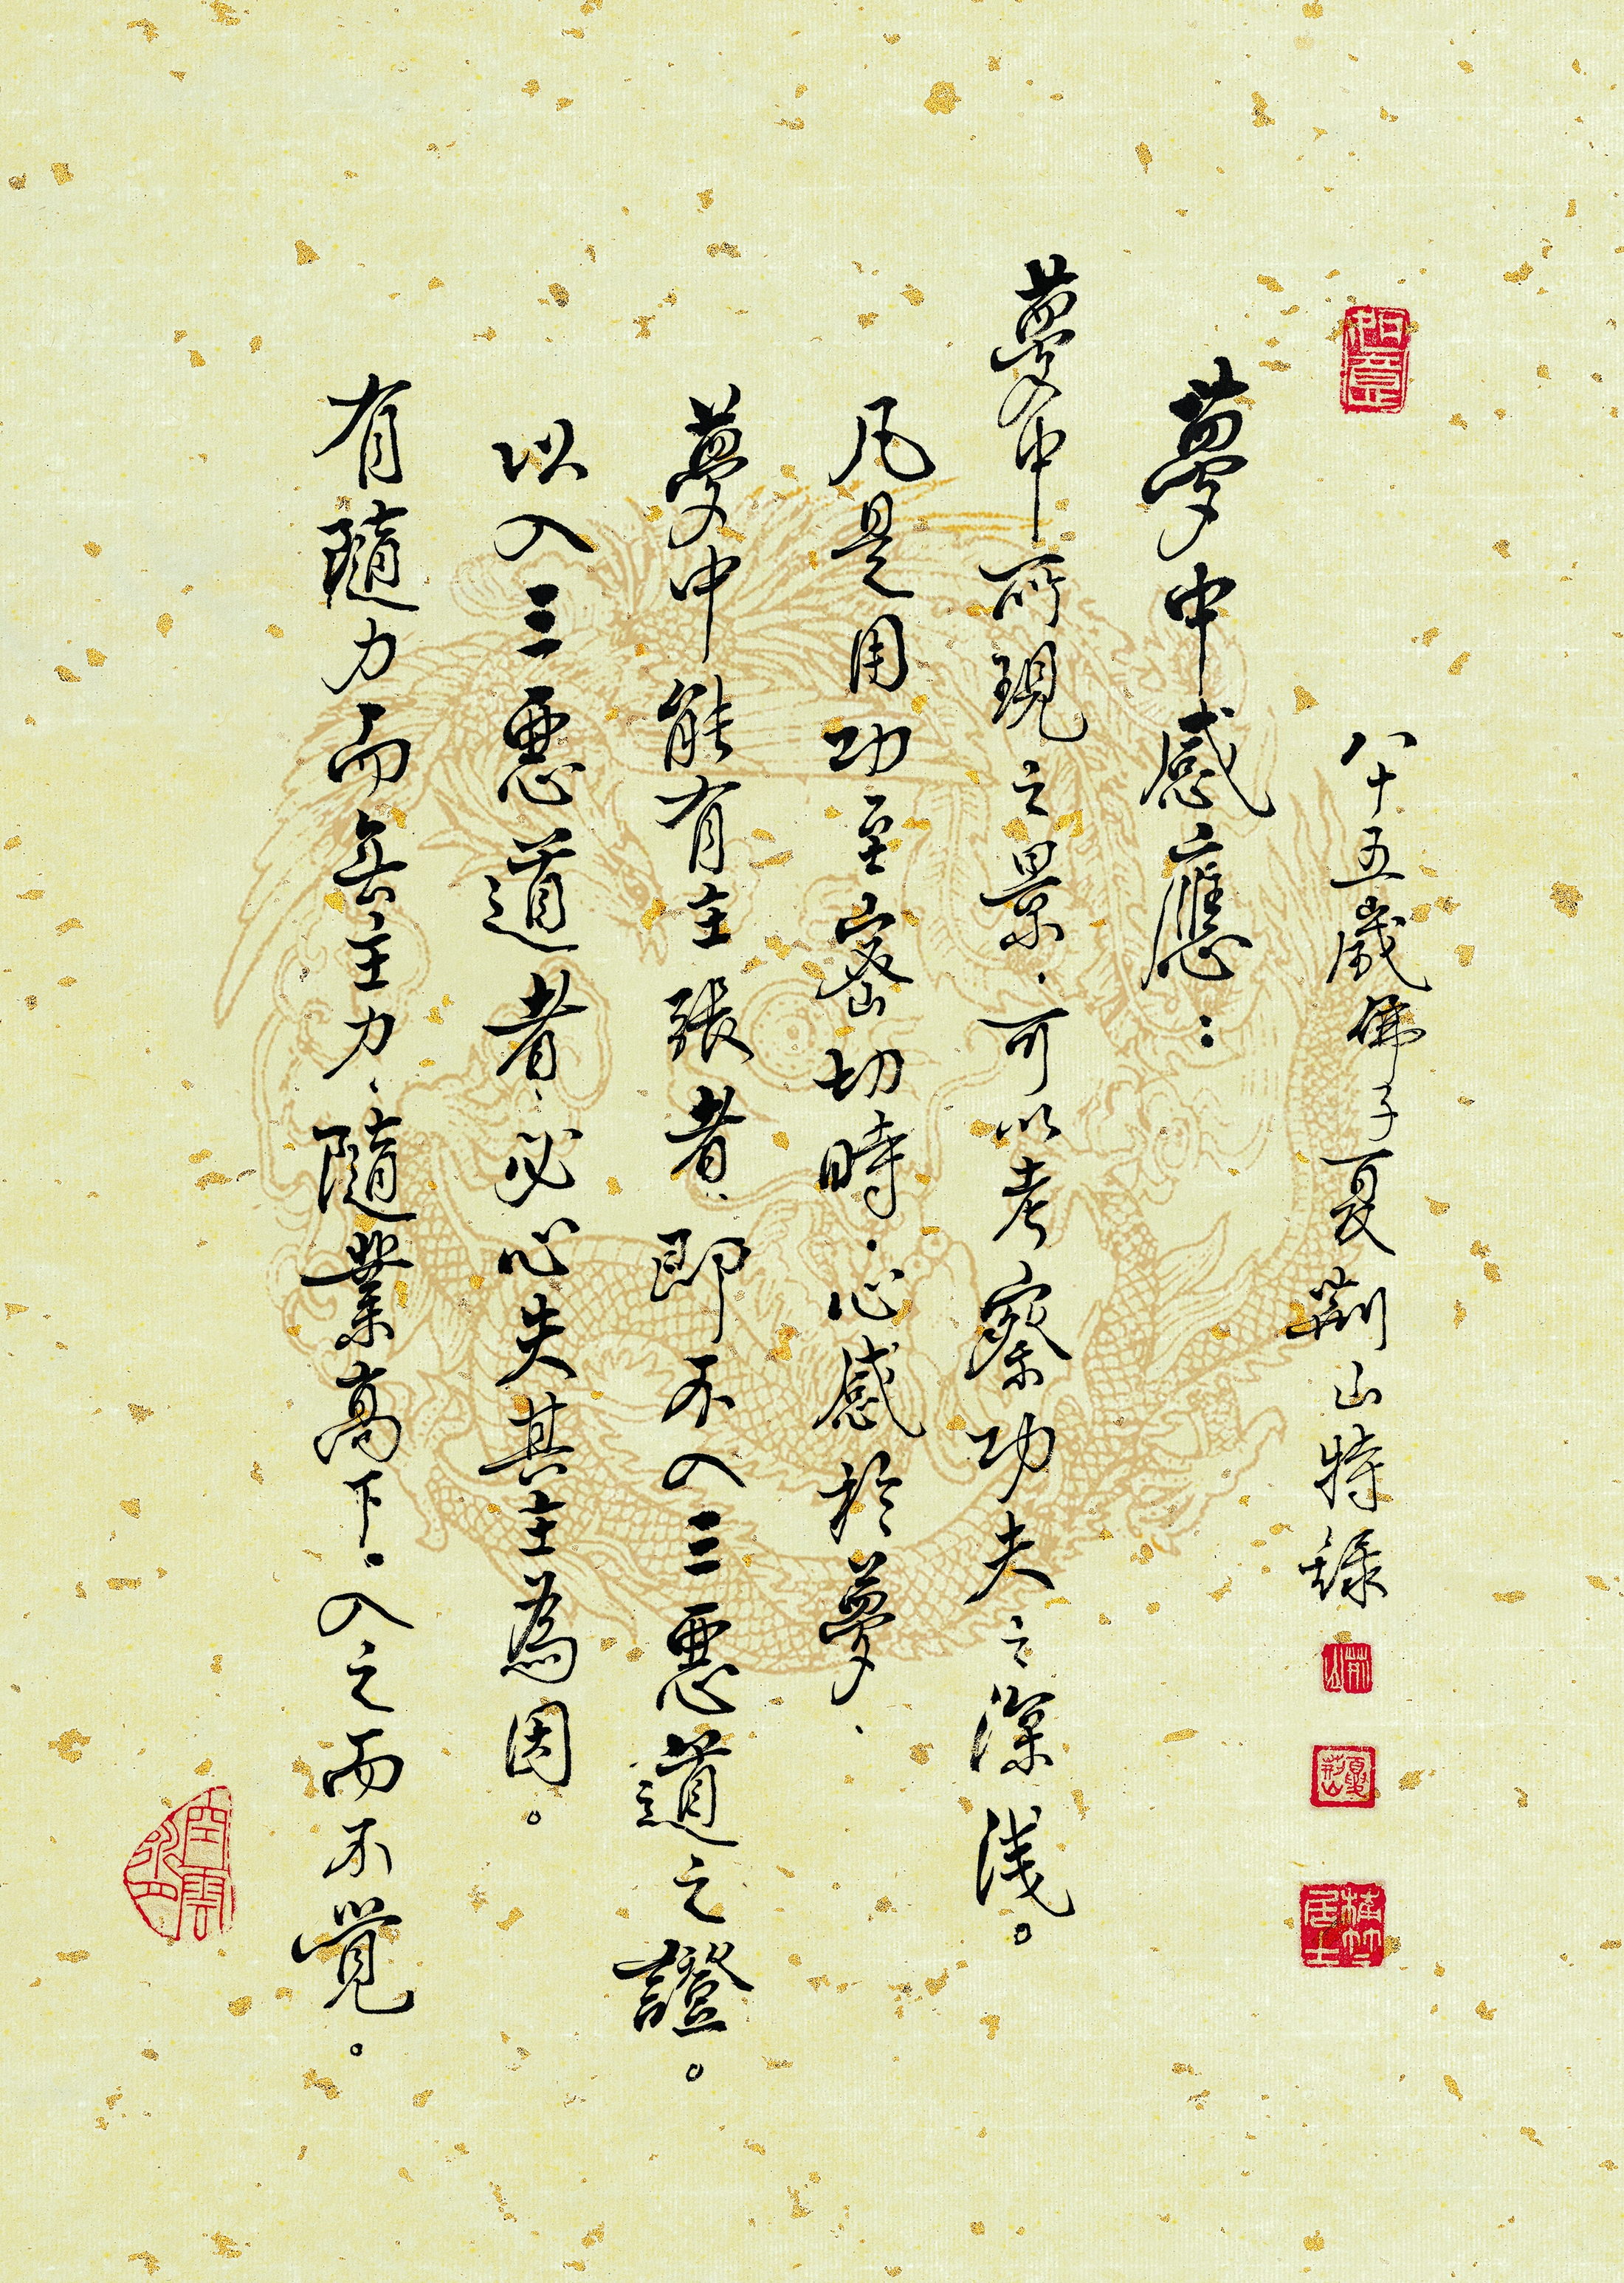 八十五歲佛子夏荆山特錄
夢中感應：
夢中所現之景，可以考察功夫之深淺。
凡是用功至密切時，心感於夢，
夢中能有主張者，即不入三惡道之證。
以入三惡道者，必心失其主為因。
有隨力而無主力，隨業高下。入之而不覺。
荊山
夏荊山
植竹居士